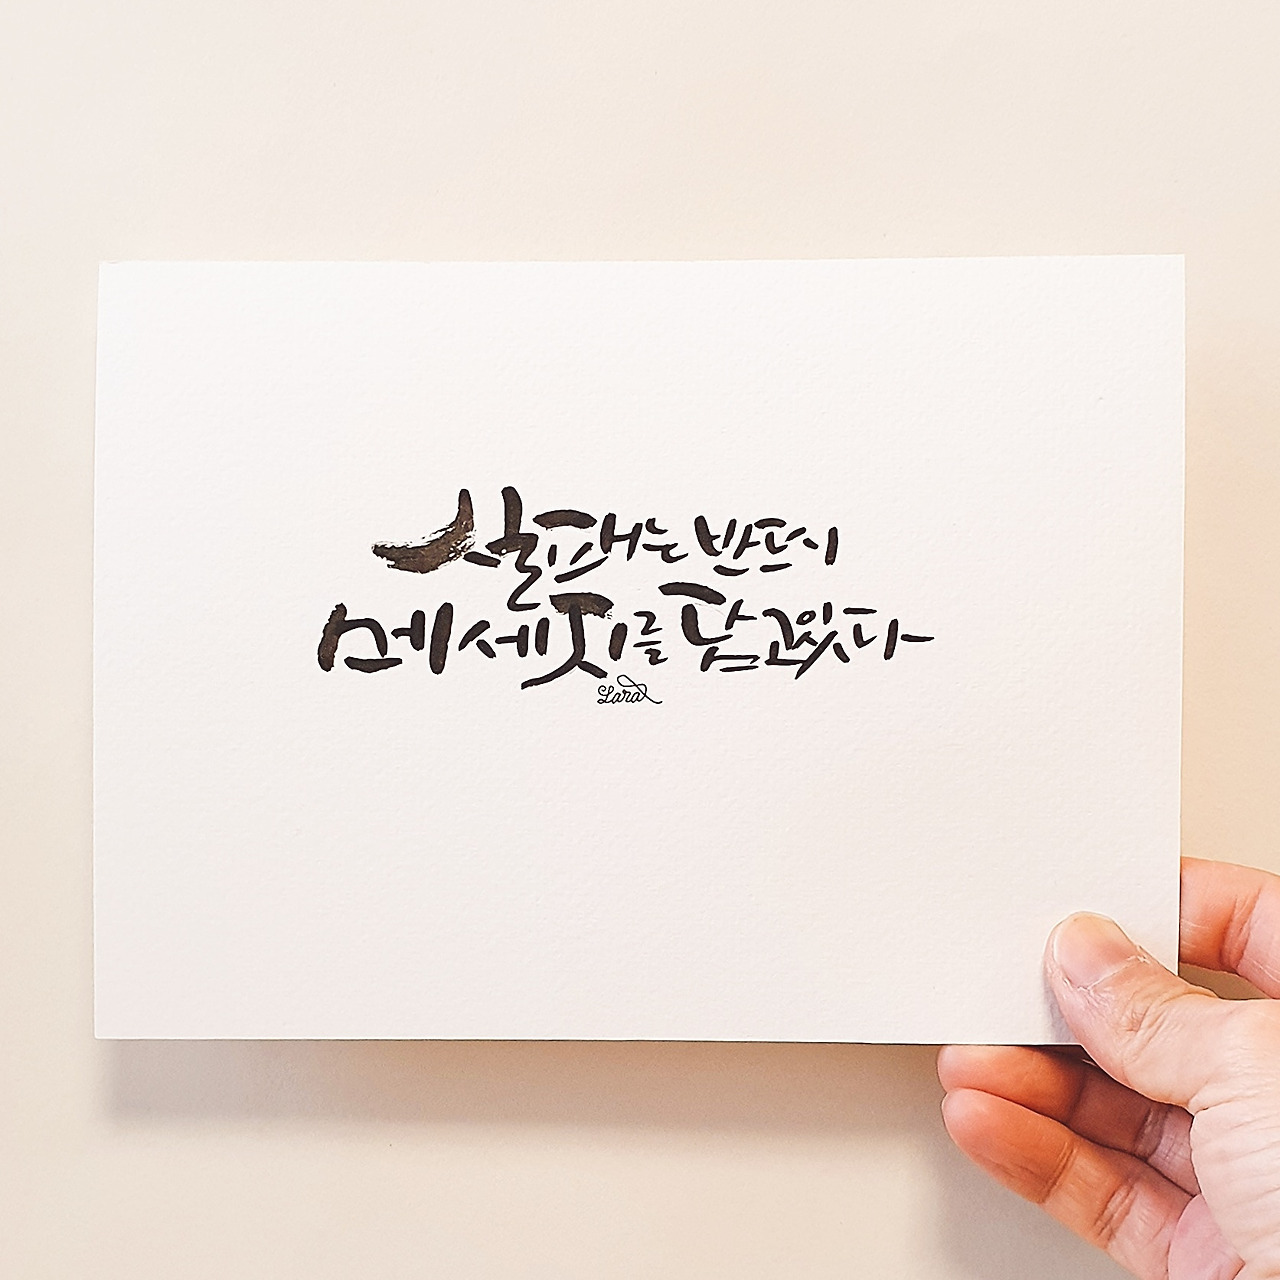 실패는 반드시
메세지를 담고있다
Lara